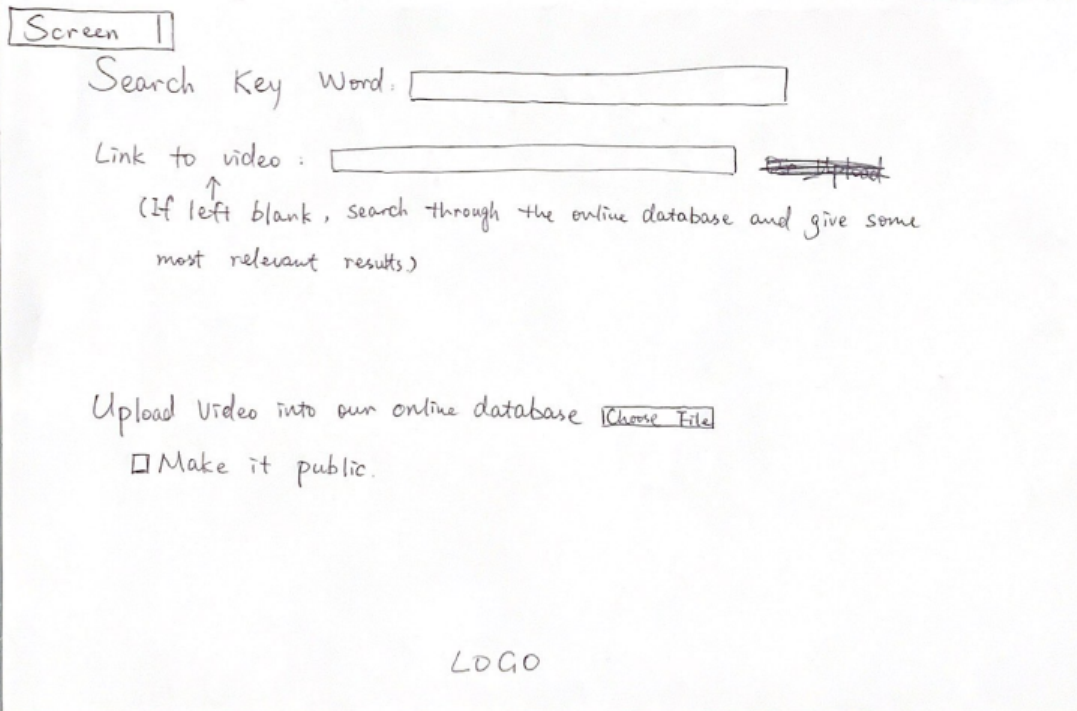 Screen 1
Search Key Word:
Link to video :
(If left blank, search through the online database and give some
most relevant results)
Upload Video into our online database Choose File
Make it public.
LOGO